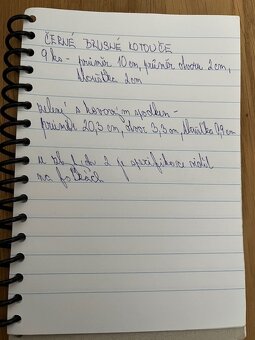 ČERNÉ BRUSNÉ KOTOUČE
9 ks - průměr 10 cm, průměr otvoru 2 cm,
tloušťka 2 cm
zelený s kovovým spodkem -
průměr 20,3 cm, otvor 3,3 cm, tloušťka 0,9 cm
u zb je specifikace vidět
na fotkách